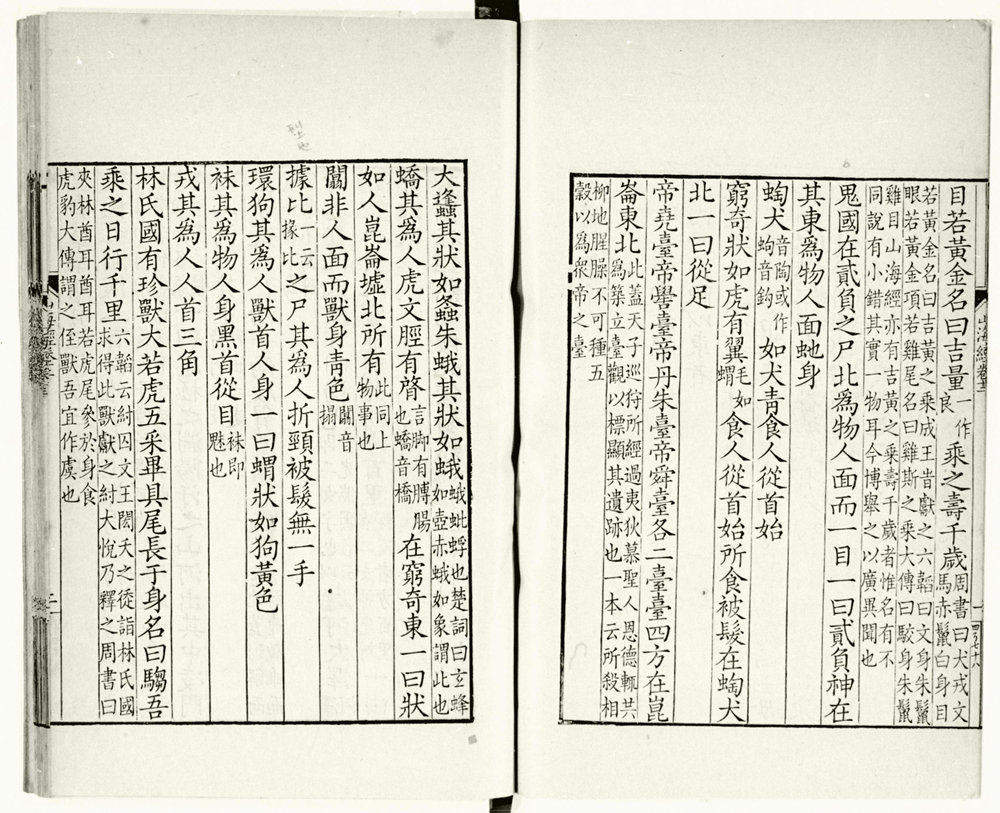 目若黃金名曰吉量一作良乘之壽千歲周書曰犬戎文馬赤鬣白身目
若黃金名曰吉黃之乘成王昔獻之六韜曰文身朱鬣
眼若黃金項若雞尾名曰雞斯之乘大傳曰駮身朱鬣
雞目山海經亦有吉黃之乘壽千歲者惟名有不
同說有小錯其實一物耳今博舉之以廣異聞也
鬼國在貳負之尸北爲物人面而一目一曰貳負神在
其東爲物人面虵身
蜪犬音陶或作蚼音鈎如犬青食人從首始
窮奇狀如虎有翼如蝟毛食人從首始所食被髮在蜪犬
北一曰從足
帝堯臺帝嚳臺帝丹朱臺帝舜臺各二臺臺四方在崑
崙東北此蓋天子巡狩所經過夷狄慕聖人恩德輒共爲築立臺觀以標顯其遺跡也一本云所殺相
柳地腥臊不可種五
穀以爲衆帝之臺
大蠭其狀如螽朱蛾其狀如蛾蛾蚍蜉也楚詞曰玄蜂如壺赤蛾如象謂此也
蟜其爲人虎文脛有䏿言脚有膊腸也蟜音橋在窮奇東一曰狀
如人崑崙墟北所有此同上物事也
闒非人面而獸身青色闒音搨
據比一云掾比之尸其爲人折頸被髮無一手
環狗其爲人獸首人身一曰蝟狀如狗黃色
袜其爲物人身黑首從目袜即魅也
戎其爲人人首三角
林氏國有珍獸大若虎五采畢具尾長于身名曰騶吾
乘之日行千里六韜云紂囚文王閎夭之徒詣林氏國求得此獸獻之紂大悅乃釋之周書曰
夾林酋耳酋耳若虎尾參於身食
虎豹大傳謂之侄獸吾宜作虞也